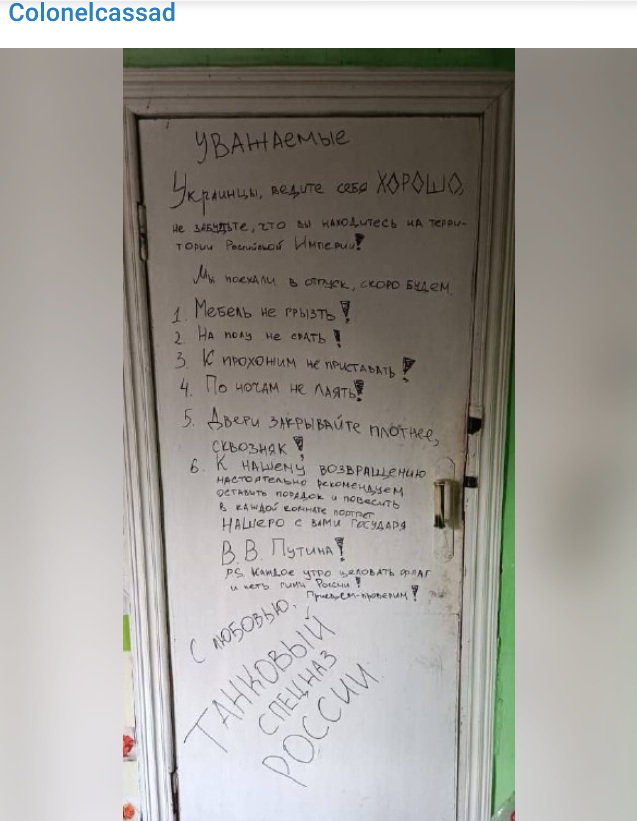 Colonelcassad
УВАЖАЕМЫЕ
Украинцы, ведите себя ХОРОШО,
не забудьте, что вы находитесь на терри-
тории Российской Империи!
Мы поехали в отпуск, скоро будем.
1. Мебель не грызть!
2. На полу не срать!
3. К прохожим не приставать!
4. По ночам не лаять!
5. Двери закрывайте плотнее,
сквозняк!
6. К нашему возвращению
настоятельно рекомендуем
оставить порядок и повесить
в каждой комнате портрет
нашего с вами государя
В.В. Путина!
PS. Каждое утро целовать флаг
и петь гимн России!
Приедем-проверим!
С любовью.
ТАНКОВЫЙ
СПЕЦНАЗ
РОССИИ